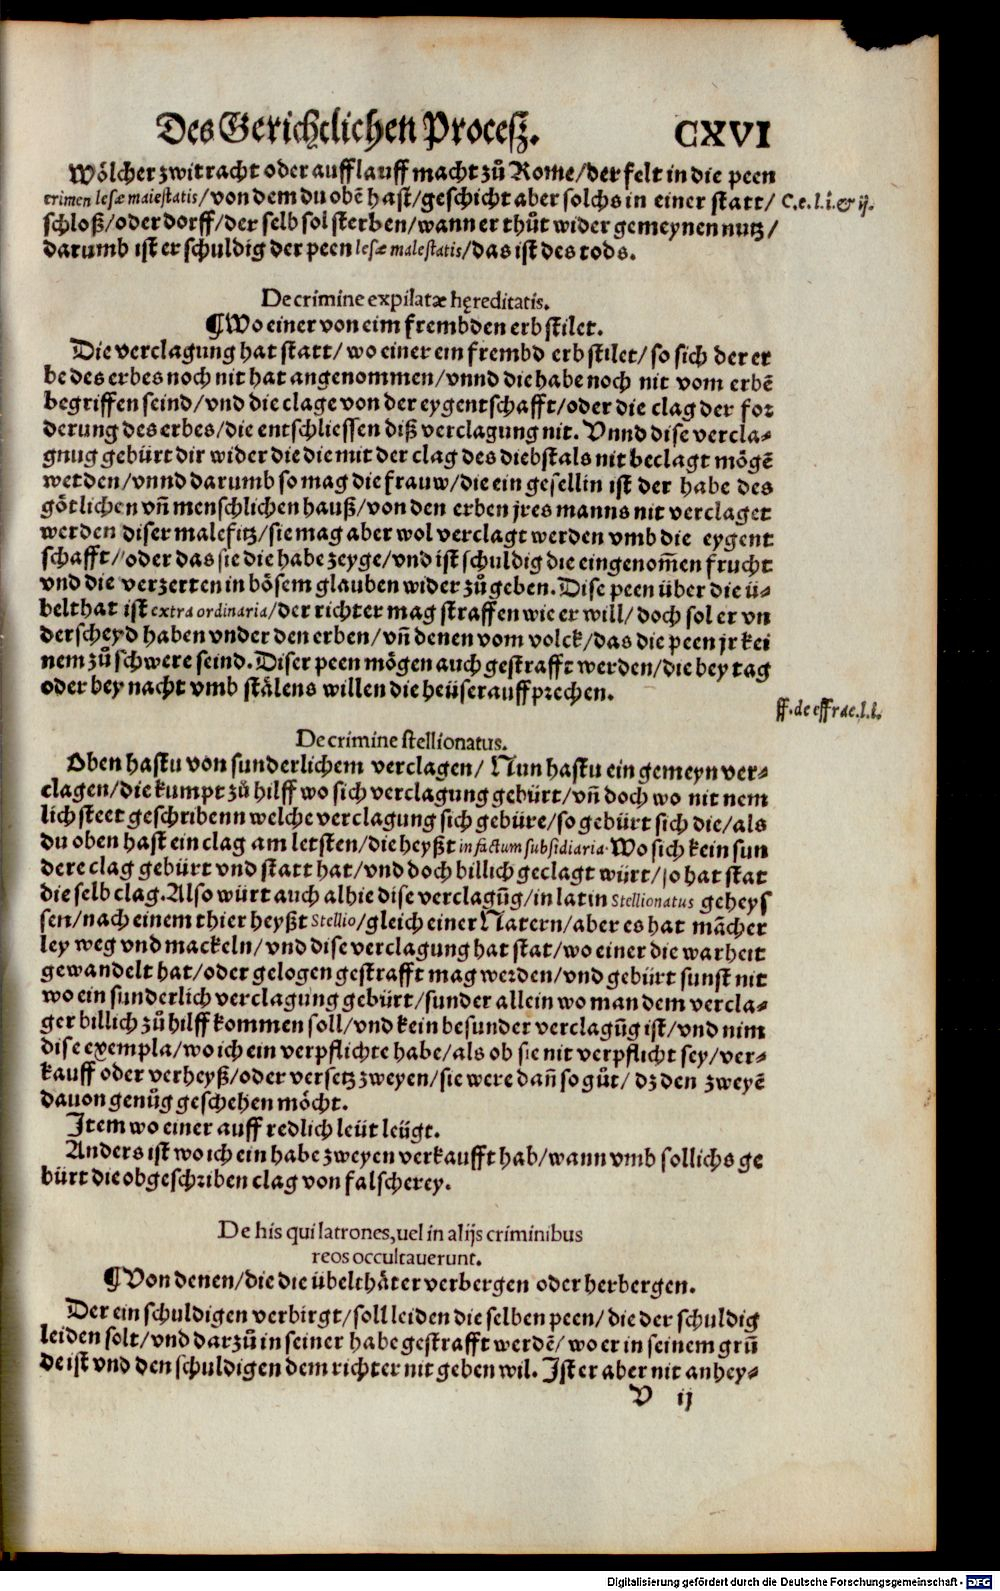 Des Gerichtlichen Procesz. CXVI
Wölcher zwitracht oder aufflauff macht zů Rome/der felt in die peen
crimen lesæ maiestatis/von dem du obē hast/geschicht aber solchs in einer statt/ C.e.l.i.& ij.
schloß/oder dorff/der selb sol sterben/wann er thůt wider gemeynen nutz/
darumb ist er schuldig der peen lesæ malestatis/das ist des tods.
De crimine expilatæ hęreditatis.
¶Wo einer von eim frembden erb stilet.
Die verclagung hat statt/ wo einer ein frembd erb stilet/ so sich der er
be des erbes noch nit hat angenommen/vnnd die habe noch nit vom erbē
begriffen seind/vnd die clage von der eygentschafft/oder die clag der for
derung des erbes/die entschliessen diß verclagung nit. Vnnd dise vercla-
gnug gebürt dir wider die die mit der clag des diebstals nit beclagt mögē
werden/vnnd darumb so mag die frauw/die ein gesellin ist der habe des
götlichen vn̄ menschlichen hauß/von den erben jres manns nit verclaget
werden diser malefitz/sie mag aber wol verclagt werden vmb die eygent
schafft/oder das sie die habe zeyge/vnd ist schuldig die eingenom̄en frucht
vnd die verzerten in bösem glauben wider zů geben. Dise peen über die ü-
belthat ist extra ordinaria/der richter mag straffen wie er will/ doch sol er vn
derscheyd haben vnder den erben/vn̄ denen vom volck/das die peen jr kei
nem zů schwere seind. Diser peen mögen auch gestrafft werden/die bey tag
oder bey nacht vmb stälens willen die heüser auffprechen.
ff.de effrac.l.i.
De crimine stellionatus.
Oben hastu von sunderlichem verclagen/ Nun hastu ein gemeyn ver-
clagen/die kumpt zů hilff wo sich verclagung gebürt/vn̄ doch wo nit nem
lich steet geschribenn welche verclagung sich gebüre/so gebürt sich die/als
du oben hast ein clag am letsten/die heyßt in factum subsidiaria. Wo sich kein sun
dere clag gebürt vnd statt hat/vnd doch billich geclagt würt/so hat stat
die selb clag. Also würt auch alhie dise verclagūg/in latin Stellionatus geheys
sen/nach einem thier heyßt Stellio/gleich einer Natern/aber es hat mācher
ley weg vnd mackeln/vnd dise verclagung hat stat/wo einer die warheit
gewandelt hat/oder gelogen gestrafft mag werden/vnd gebürt sunst nit
wo ein sunderlich verclagung gebürt/sunder allein wo man dem vercla-
ger billich zů hilff kommen soll/vnd kein besunder verclagūg ist/vnd nim
dise exempla/wo ich ein verpflichte habe/als ob sie nit verpflicht sey/ver-
kauff oder verheyß/oder versetz zweyen/sie were dan̄ so gůt/ dz den zweyē
dauon genůg geschehen möcht.
Item wo einer auff redlich leüt leügt.
Anders ist wo ich ein habe zweyen verkaufft hab/wann vmb sollichs ge
bürt die obgeschriben clag von falscherey.
De his qui latrones,uel in alijs criminibus
reos occultauerunt.
¶Von denen/die die übelthäter verbergen oder herbergen.
Der ein schuldigen verbirgt/soll leiden die selben peen/die der schuldig
leiden solt/vnd darzů in seiner habe gestrafft werdē/wo er in seinem grū
de ist vnd den schuldigen dem richter nit geben wil. Ist er aber nit anhey-
V ij
Digitalisierung gefördert durch die Deutsche Forschungsgemeinschaft - DFG